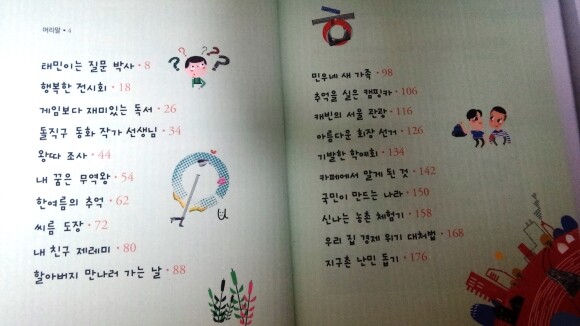 머리말 • 4
태민이는 질문 박사 • 8
행복한 전시회 • 18
게임보다 재미있는 독서 • 26
돌직구 동화 작가 선생님 • 34
왕따 조사 • 44
내 꿈은 무역왕 • 54
한여름의 추억 • 62
씨름 도장 • 72
내 친구 제레미 • 80
할아버지 만나러 가는 날 • 88
민우네 새 가족 • 98
추억을 실은 캠핑카 • 106
캐빈의 서울 관광 • 116
아름다운 회장 선거 • 126
기발한 학예회 • 134
카페에서 알게 된 것 • 142
국민이 만드는 나라 • 150
신나는 농촌 체험기 • 158
우리 집 경제 위기 대처법 • 168
지구촌 난민 돕기 • 176